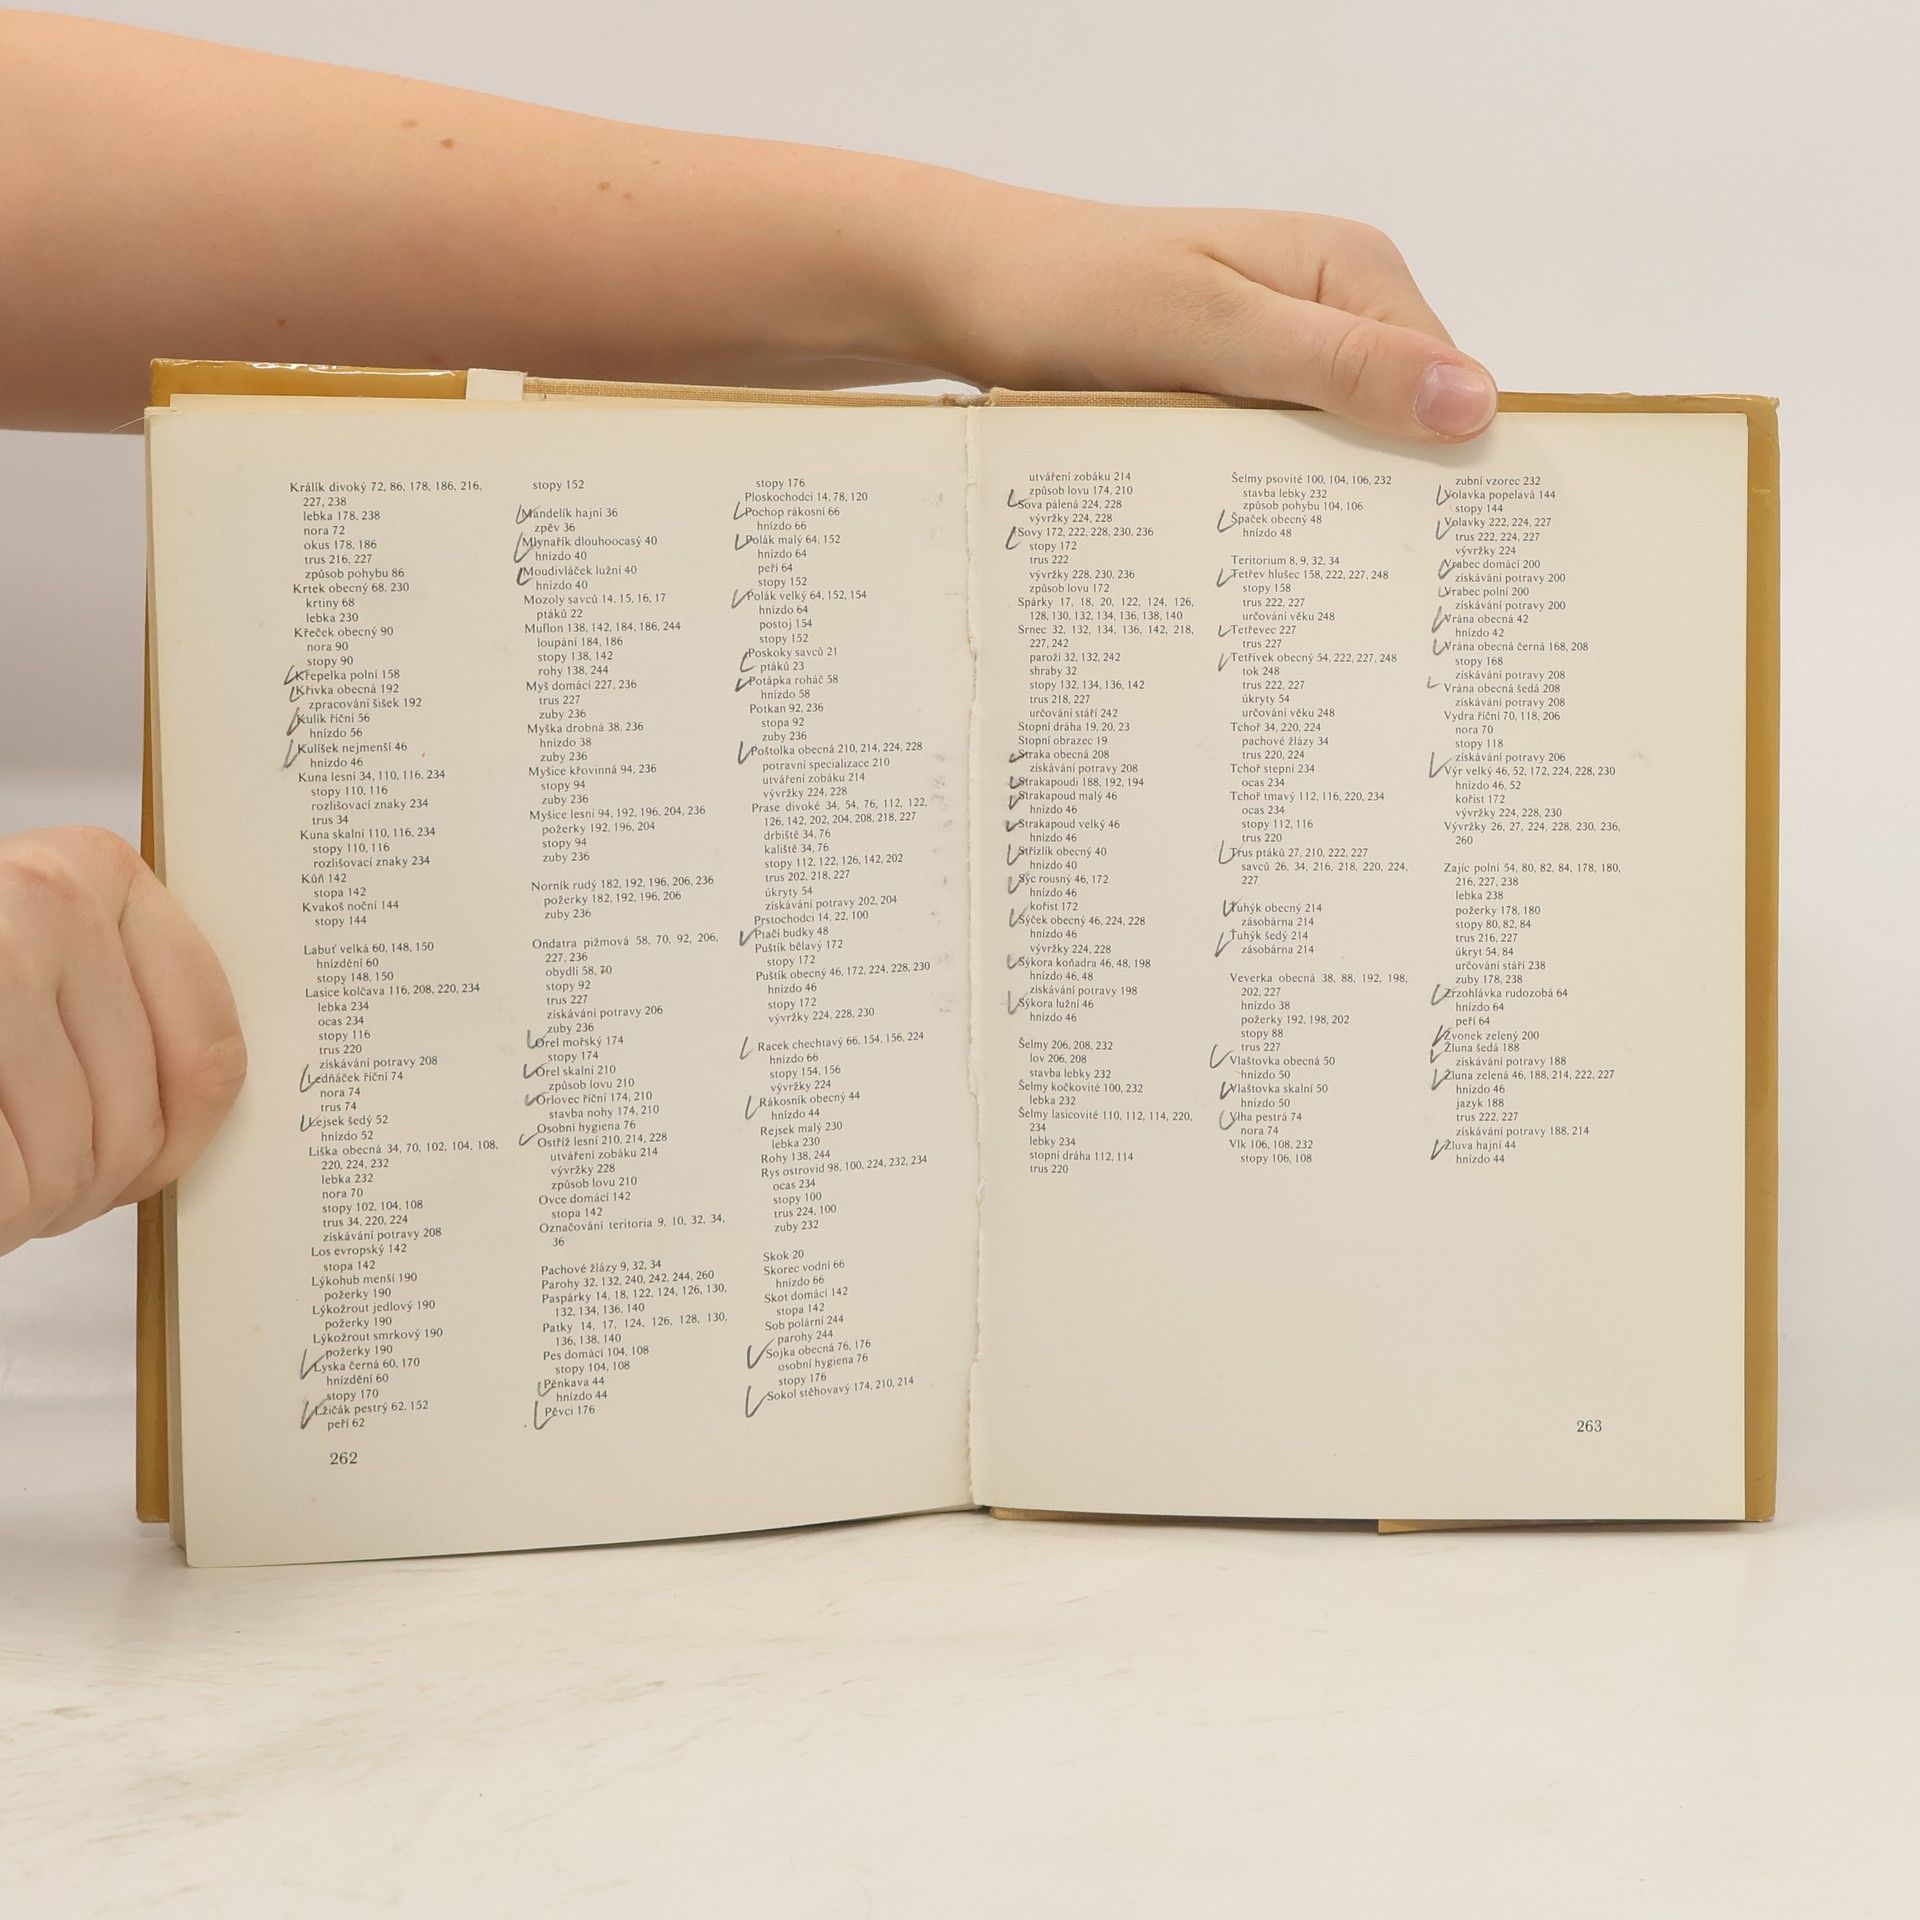 Králík divoký 72, 86, 178, 186, 216,
227, 238
lebka 178, 238
nora 72
okus 178, 186
trus 216, 227
způsob pohybu 86
Krtek obecný 68, 230
krtiny 68
lebka 230
Křeček obecný 90
nora 90
stopy 90
Křepelka polní 158
Křivka obecná 192
zpracování šišek 192
Kulík říční 56
hnízdo 56
Kulíšek nejmenší 46
hnízdo 46
Kuna lesní 34, 110, 116, 234
stopy 110, 116
rozlišovací znaky 234
trus 34
Kuna skalní 110, 116, 234
stopy 110, 116
rozlišovací znaky 234
Kůň 142
stopa 142
Kvakoš noční 144
stopy 144
Labuť velká 60, 148, 150
hnízdění 60
stopy 148, 150
Lasice kolčava 116, 208, 220, 234
lebka 234
ocas 234
stopy 116
trus 220
získávání potravy 208
Ledňáček říční 74
nora 74
trus 74
Lejsek šedý 52
hnízdo 52
Liška obecná 34, 70, 102, 104, 108,
220, 224, 232
lebka 232
nora 70
stopy 102, 104, 108
trus 34, 220, 224
získávání potravy 208
Los evropský 142
stopa 142
Lýkohub menší 190
požerky 190
Lýkožrout jedlový 190
požerky 190
Lýkožrout smrkový 190
požerky 190
Lyska černá 60, 170
hnízdění 60
stopy 170
Lžičák pestrý 62, 152
peří 62
stopy 152
Mandelík hajní 36
zpěv 36
Mlynařík dlouhoocasý 40
hnízdo 40
Moudivláček lužní 40
hnízdo 40
Mozoly savců 14, 15, 16, 17
ptáků 22
Muflon 138, 142, 184, 186, 244
loupání 184, 186
stopy 138, 142
rohy 138, 244
Myš domácí 227, 236
trus 227
zuby 236
Myška drobná 38, 236
hnízdo 38
zuby 236
Myšice křovinná 94, 236
stopy 94
zuby 236
Myšice lesní 94, 192, 196, 204, 236
požerky 192, 196, 204
stopy 94
zuby 236
Norník rudý 182, 192, 196, 206, 236
požerky 182, 192, 196, 206
zuby 236
Ondatra pižmová 58, 70, 92, 206,
227, 236
obydlí 58, 70
stopy 92
trus 227
získávání potravy 206
zuby 236
Orel mořský 174
stopy 174
Orel skalní 210
způsob lovu 210
Orlovec říční 174, 210
stavba nohy 174, 210
Osobní hygiena 76
Ostříž lesní 210, 214, 228
utváření zobáku 214
vývržky 228
způsob lovu 210
Ovce domácí 142
stopa 142
Označování teritoria 9, 10, 32, 34,
36
Pachové žlázy 9, 32, 34
Parohy 32, 132, 240, 242, 244, 260
Paspárky 14, 18, 122, 124, 126, 130,
132, 134, 136, 140
Patky 14, 17, 124, 126, 128, 130,
136, 138, 140
Pes domácí 104, 108
stopy 104, 108
Pěnkava 44
hnízdo 44
Pěvci 176
stopy 176
Ploskochodci 14, 78, 120
Pochop rákosní 66
hnízdo 66
Polák malý 64, 152
hnízdo 64
peří 64
stopy 152
Polák velký 64, 152, 154
hnízdo 64
postoj 154
stopy 152
Poskoky savců 21
ptáků 23
Potápka roháč 58
hnízdo 58
Potkan 92, 236
stopa 92
zuby 236
Poštolka obecná 210, 214, 224, 228
potravní specializace 210
utváření zobáku 214
vývržky 224, 228
Prase divoké 34, 54, 76, 112, 122,
126, 142, 202, 204, 208, 218, 227
drbiště 34, 76
kaliště 34, 76
stopy 112, 122, 126, 142, 202
trus 202, 218, 227
úkryty 54
získávání potravy 202, 204
Prstochodci 14, 22, 100
Ptačí budky 48
Puštík bělavý 172
stopy 172
Puštík obecný 46, 172, 224, 228, 230
hnízdo 46
stopy 172
vývržky 224, 228, 230
Racek chechtavý 66, 154, 156, 224
hnízdo 66
stopy 154, 156
vývržky 224
Rákosník obecný 44
hnízdo 44
Rejsek malý 230
lebka 230
Rohy 138, 244
Rys ostrovid 98, 100, 224, 232, 234
ocas 234
stopy 100
trus 224, 100
zuby 232
Skok 20
Skorec vodní 66
hnízdo 66
Skot domácí 142
stopa 142
Sob polární 244
parohy 244
Sojka obecná 76, 176
osobní hygiena 76
stopy 176
Sokol stěhovavý 174, 210, 214
262
utváření zobáku 214
způsob lovu 174, 210
Sova pálená 224, 228
vývržky 224, 228
Sovy 172, 222, 228, 230, 236
stopy 172
trus 222
vývržky 228, 230, 236
způsob lovu 172
Spárky 17, 18, 20, 122, 124, 126,
128, 130, 132, 134, 136, 138, 140
Srnec 32, 132, 134, 136, 142, 218,
227, 242
paroží 32, 132, 242
shraby 32
stopy 132, 134, 136, 142
trus 218, 227
určování stáří 242
Stopní dráha 19, 20, 23
Stopní obrazec 19
Straka obecná 208
získávání potravy 208
Strakapoudi 188, 192, 194
Strakapoud malý 46
hnízdo 46
Strakapoud velký 46
hnízdo 46
Střízlík obecný 40
hnízdo 40
Sýc rousný 46, 172
hnízdo 46
kořist 172
Sýček obecný 46, 224, 228
hnízdo 46
vývržky 224, 228
Sýkora koňadra 46, 48, 198
hnízdo 46, 48
získávání potravy 198
Sýkora lužní 46
hnízdo 46
Šelmy 206, 208, 232
lov 206, 208
stavba lebky 232
Šelmy kočkovité 100, 232
lebka 232
Šelmy lasicovité 110, 112, 114, 220,
234
lebky 234
stopní dráha 112, 114
trus 220
Šelmy psovité 100, 104, 106, 232
stavba lebky 232
způsob pohybu 104, 106
Špaček obecný 48
hnízdo 48
Teritorium 8, 9, 32, 34
Tetřev hlušec 158, 222, 227, 248
stopy 158
trus 222, 227
určování věku 248
Tetřevec 227
trus 227
Tetřívek obecný 54, 222, 227, 248
tok 248
trus 222, 227
úkryty 54
určování věku 248
Tchoř 34, 220, 224
pachové žlázy 34
trus 220, 224
Tchoř stepní 234
ocas 234
Tchoř tmavý 112, 116, 220, 234
ocas 234
stopy 112, 116
trus 220
Trus ptáků 27, 210, 222, 227
savců 26, 34, 216, 218, 220, 224,
227
Ťuhýk obecný 214
zásobárna 214
Ťuhýk šedý 214
zásobárna 214
Veverka obecná 38, 88, 192, 198,
202, 227
hnízdo 38
požerky 192, 198, 202
stopy 88
trus 227
Vlaštovka obecná 50
hnízdo 50
Vlaštovka skalní 50
hnízdo 50
Vlha pestrá 74
nora 74
Vlk 106, 108, 232
stopy 106, 108
zubní vzorec 232
Volavka popelavá 144
stopy 144
Volavky 222, 224, 227
trus 222, 224, 227
vývržky 224
Vrabec domácí 200
získávání potravy 200
Vrabec polní 200
získávání potravy 200
Vrána obecná 42
hnízdo 42
Vrána obecná černá 168, 208
stopy 168
získávání potravy 208
Vrána obecná šedá 208
získávání potravy 208
Vydra říční 70, 118, 206
nora 70
stopy 118
získávání potravy 206
Výr velký 46, 52, 172, 224, 228, 230
hnízdo 46, 52
kořist 172
vývržky 224, 228, 230
Vývržky 26, 27, 224, 228, 230, 236,
260
Zajíc polní 54, 80, 82, 84, 178, 180,
216, 227, 238
lebka 238
požerky 178, 180
stopy 80, 82, 84
trus 216, 227
úkryt 54, 84
určování stáří 238
zuby 178, 238
Zrzohlávka rudozobá 64
hnízdo 64
peří 64
Zvonek zelený 200
Žluna šedá 188
získávání potravy 188
Žluna zelená 46, 188, 214, 222, 227
hnízdo 46
jazyk 188
trus 222, 227
získávání potravy 188, 214
Žluva hajní 44
hnízdo 44
263